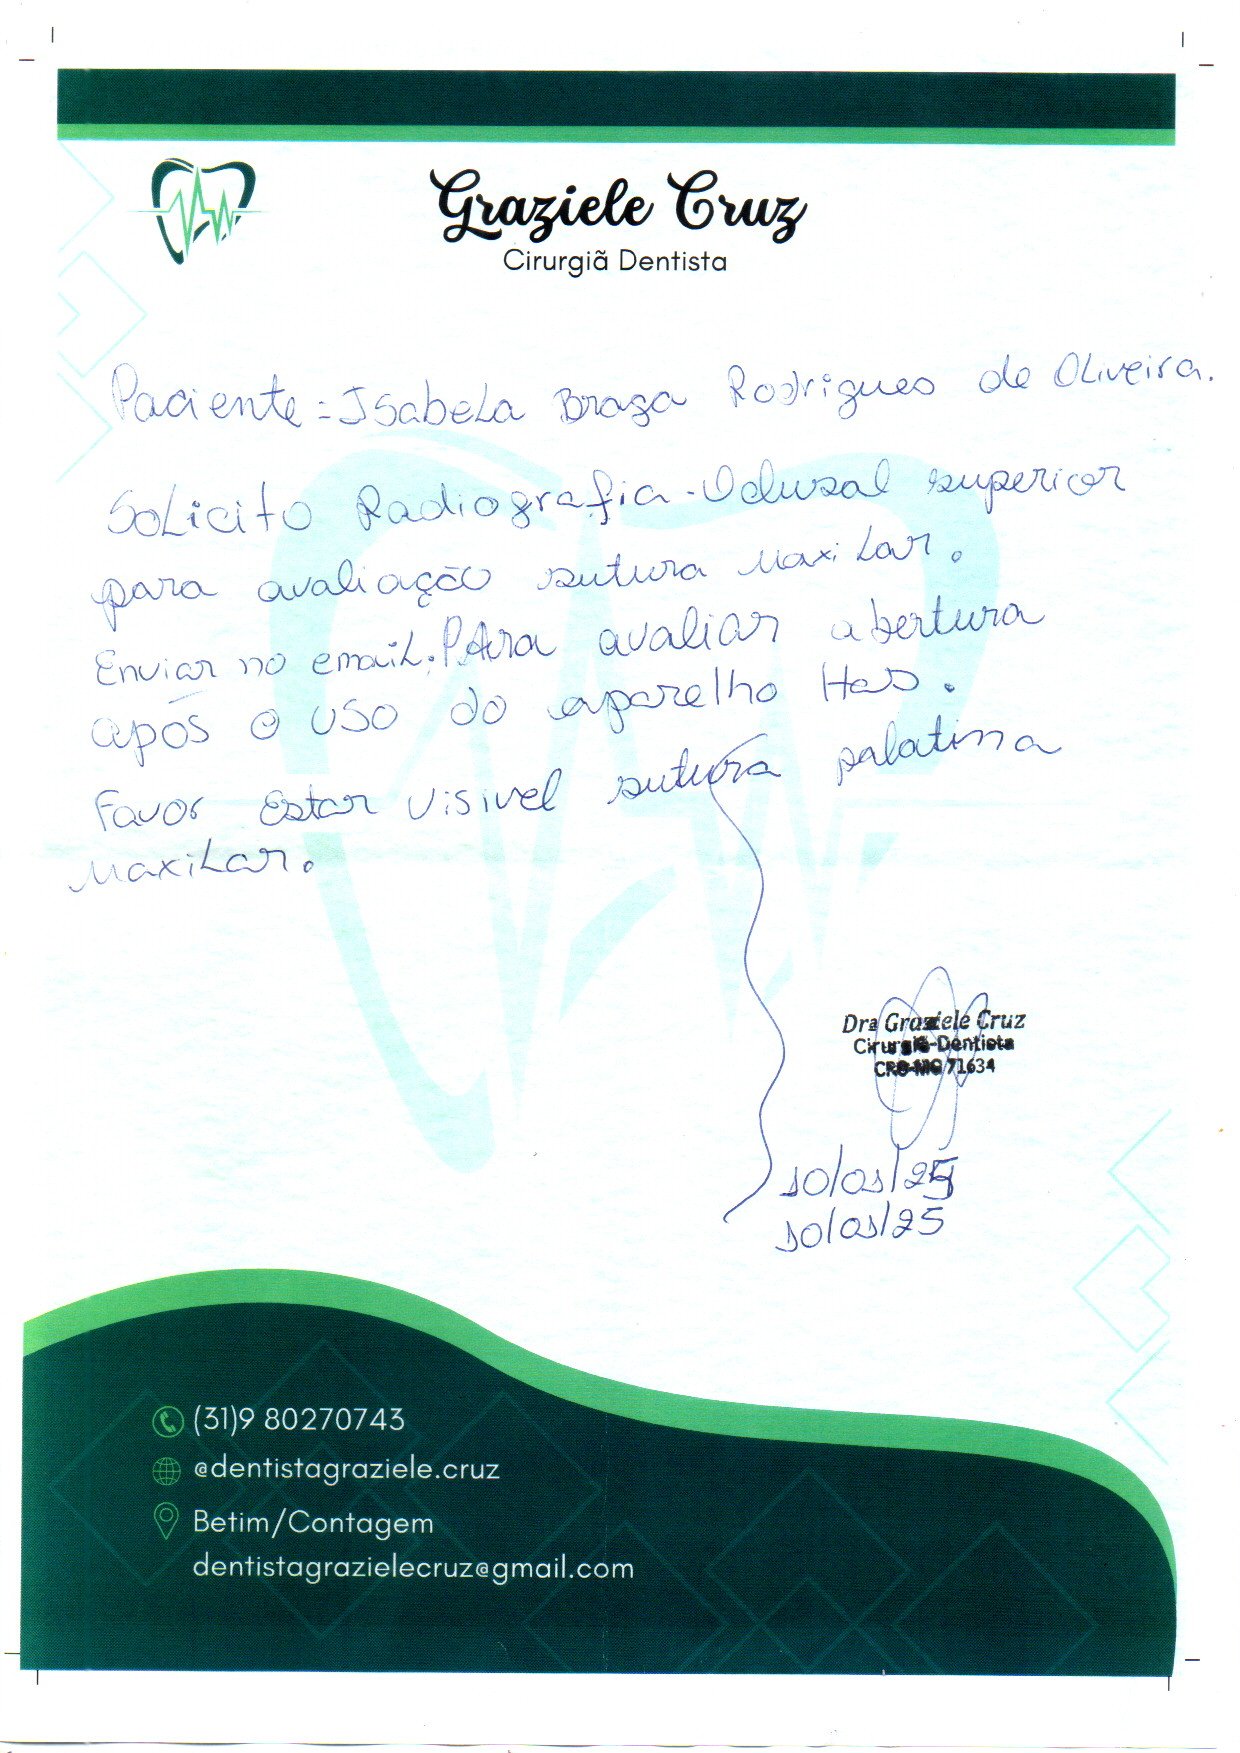 Graziele Cruz
Cirurgiã Dentista
Paciente = Isabela Braga Rodrigues de Oliveira.
Solicito Radiografia - Oclusal superior
para avaliação sutura maxilar.
Enviar no email. Para avaliar abertura
após o uso do aparelho Has.
Favor Estar visivel sutura palatina
maxilar.
Dra Graziele Cruz
Cirurgiã-Dentista
CRO-MG 71634
10/01/25
10/01/25
(31)9 80270743
@dentistagraziele.cruz
Betim/Contagem
dentistagrazielecruz@gmail.com